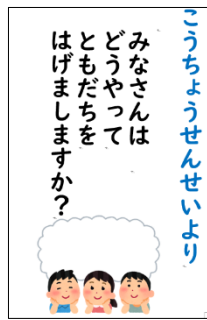 こうちょうせんせいより
みなさんは
どうやって
ともだちを
はげましますか？